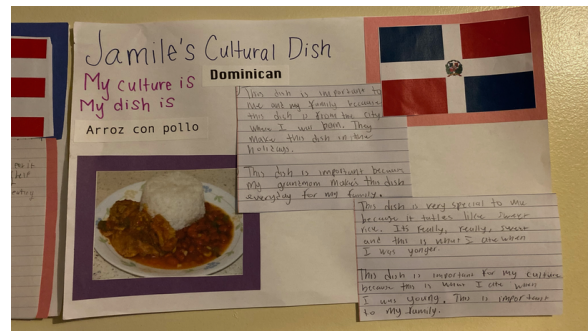 Jamile's Cultural Dish
My culture is
Dominican
My dish is
Arroz con pollo
This dish is important to
me and my family because
this dish is from the city
where I was born. They
make this dish in the
This dish is important because
my makes this dish
everyday for my family.
This dish is very special to me
because it tastes like
rice. It's really, really, sweet
and this is what I ate when
I was yonger.
This dish is important for my culture
because this is what I ate when
I was young. This is important
to my family.